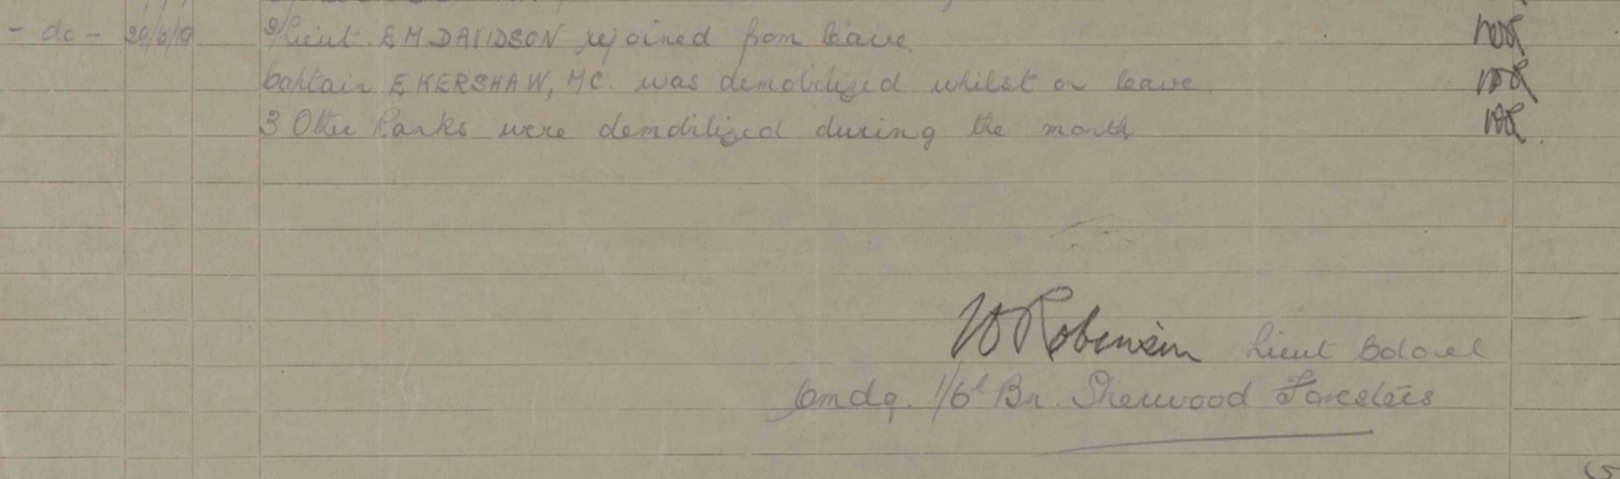 - do - 29/6/19 2/Lieut. E M DAVIDSON rejoined from leave.
Captain E KERSHAW, MC. was demobilized whilst on leave.
3 Other Ranks were demobilized during the month
W Robinson Lieut Colonel
Cmdg. 1/6th Bn. Sherwood Foresters
(5